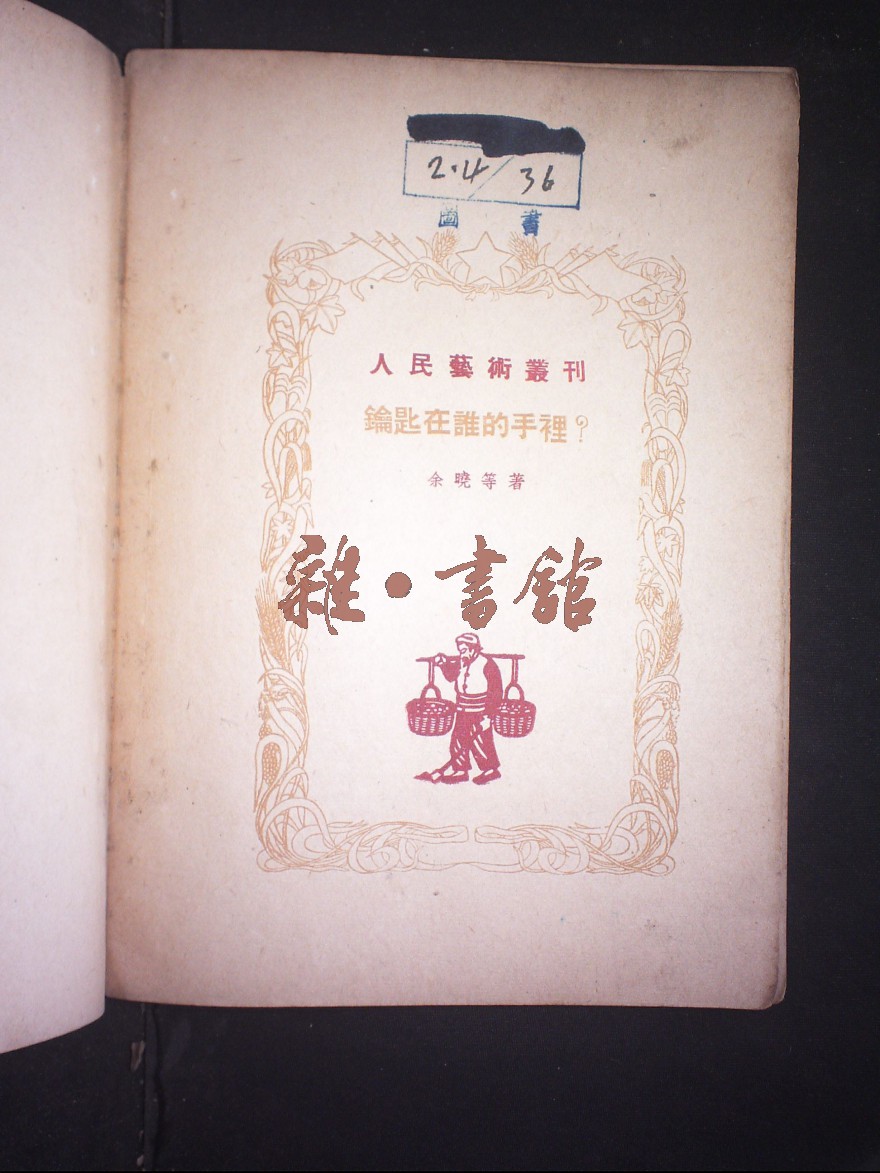 2.4/36
圖 書
人民藝術叢刊
鑰匙在誰的手裡?
余曉等著
雜·書館